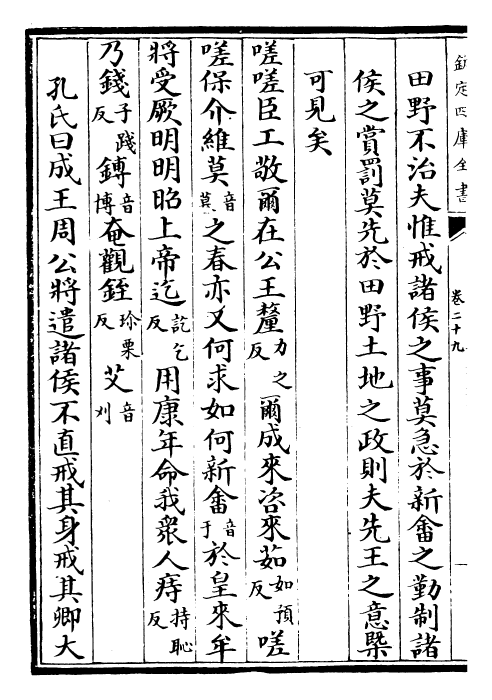 欽定四庫全書
卷二十九
田野不治夫惟戒諸侯之事莫急於新畬之勤制諸
侯之賞罰莫先於田野土地之政則夫先王之意槩
可見矣
嗟嗟臣工敬爾在公王釐力之反爾成來咨來茹如預反嗟
嗟保介維莫音莫之春亦又何求如何新畬音于於皇來牟
將受厥明明昭上帝迄訖乞反用康年命我衆人庤持恥反
乃錢子踐反鎛音博奄觀銍珍栗反艾音刈
孔氏曰成王周公將遣諸侯不直戒其身戒其卿大